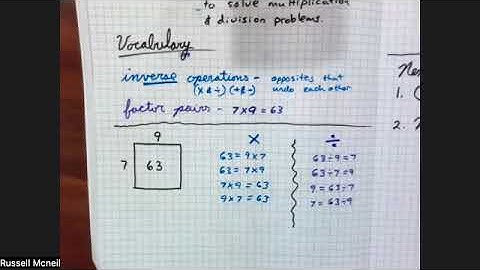 to solve multiplication
& division problems.
Vocabulary
inverse operations - opposites that
(x & ÷) (+ & -) undo each other
factor pairs - 7x9 = 63
9
7 63
x
63 = 9x7
63 = 7x9
7x9 = 63
9x7 = 63
÷
63÷9 = 7
63÷7 = 9
9 = 63÷7
7 = 63÷9
1.
2.
Russell Mcneil